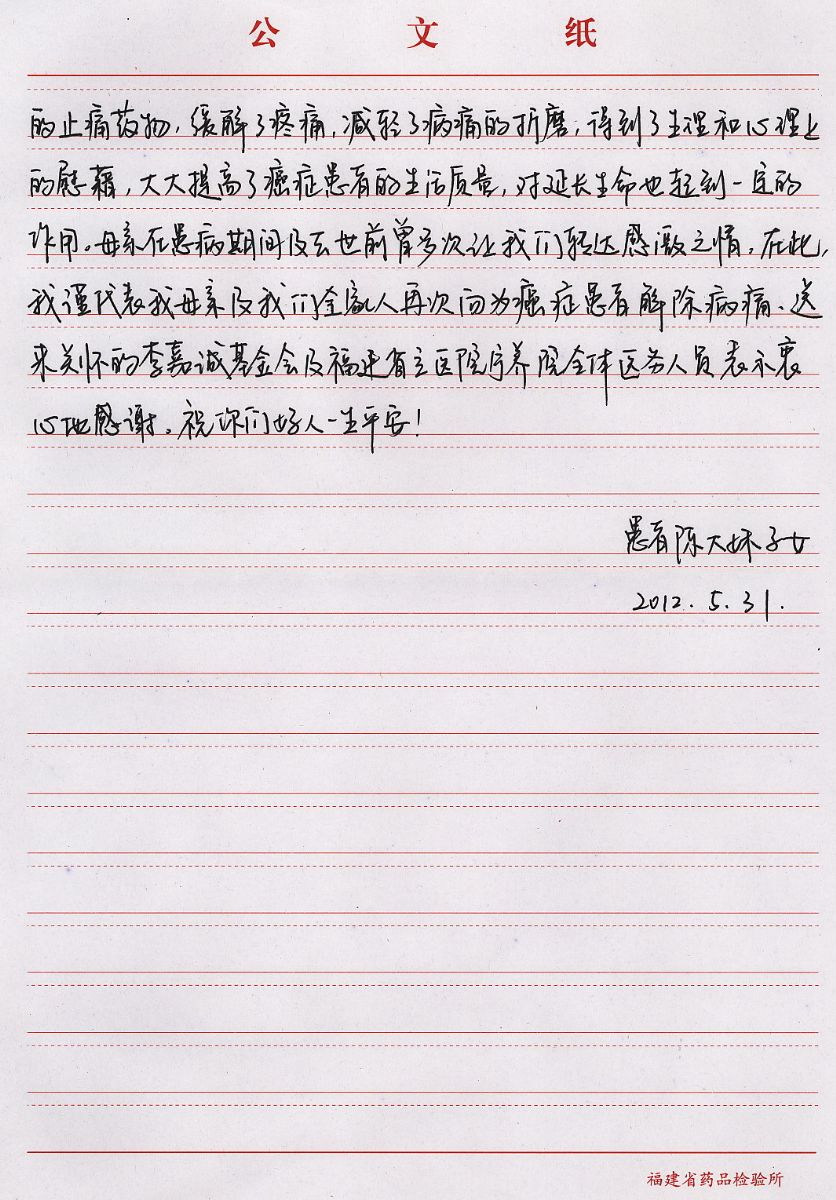 公文纸
的止痛药物，缓解了疼痛，减轻了病痛的折磨，得到了生理和心理上
的慰藉，大大提高了癌症患者的生活质量，对延长生命也起到一定的
作用。母亲在患病期间及去世前曾多次让我们转达感激之情，在此，
我谨代表我母亲及我们全家人再次向为癌症患者解除病痛、送
来关怀的李嘉诚基金会及福建省立医院宁养院全体医务人员表示衷
心地感谢。祝你们好人一生平安！
患者陈大妹子女
2012.5.31.
福建省药品检验所